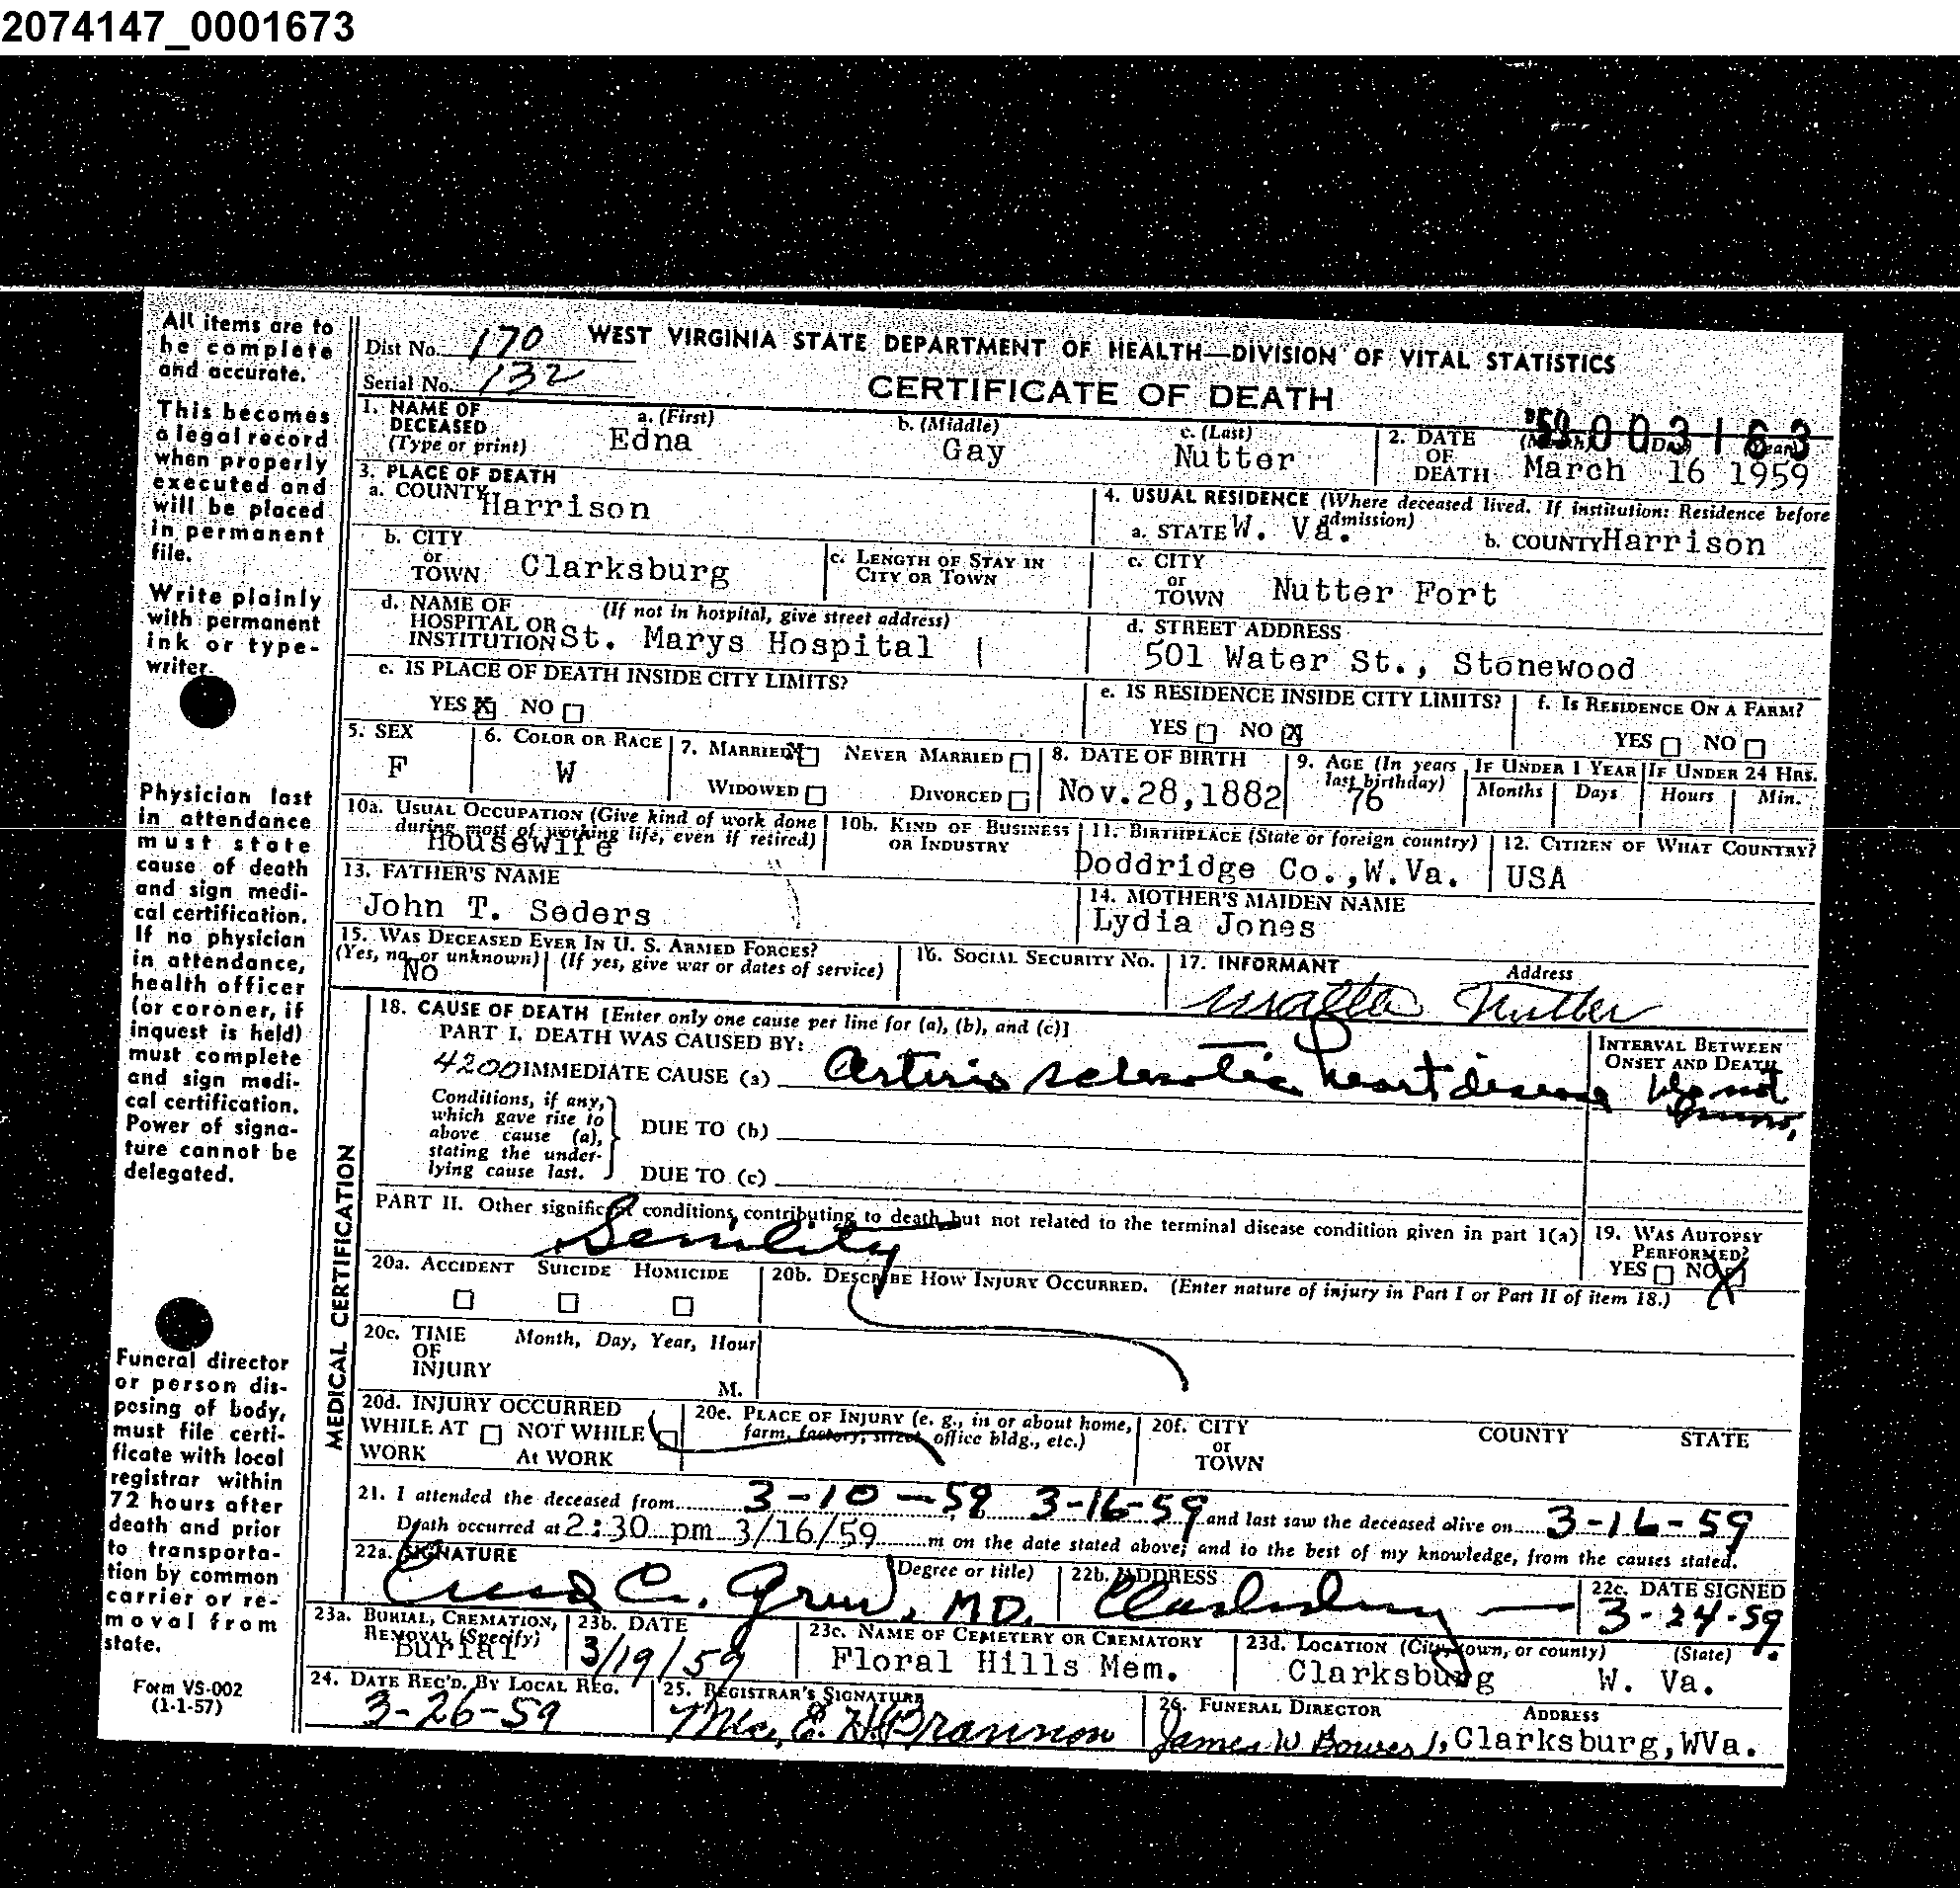 2074147_0001673
All items are to
be complete
and accurate.
This becomes
a legal record
when properly
executed and
will be placed
in permanent
file.
Write plainly
with permanent
ink or type-
writer.
Physician last
in attendance
must state
cause of death
and sign medi-
cal certification.
If no physician
in attendance,
health officer
(or coroner, if
inquest is held)
must complete
and sign medi-
cal certification.
Power of signa-
ture cannot be
delegated.
Funeral director
or person dis-
posing of body,
must file certi-
ficate with local
registrar within
72 hours after
death and prior
to transporta-
tion by common
carrier or re-
moval from
state.
Form VS-002
(1-1-57)
Dist No. 170 WEST VIRGINIA STATE DEPARTMENT OF HEALTH—DIVISION OF VITAL STATISTICS
Serial No. 132 CERTIFICATE OF DEATH
003163
1. NAME OF DECEASED (Type or print) a. (First) Edna b. (Middle) Gay c. (Last) Nutter
2. DATE OF DEATH (Month) (Day) (Year) March 16 1959
3. PLACE OF DEATH
a. COUNTY Harrison
4. USUAL RESIDENCE (Where deceased lived. If institution: Residence before admission)
a. STATE W. Va. b. COUNTY Harrison
b. CITY or TOWN Clarksburg c. LENGTH OF STAY IN CITY OR TOWN
c. CITY or TOWN Nutter Fort
d. NAME OF HOSPITAL OR INSTITUTION (If not in hospital, give street address) St. Marys Hospital
d. STREET ADDRESS 501 Water St., Stonewood
e. IS PLACE OF DEATH INSIDE CITY LIMITS?
YES X NO
e. IS RESIDENCE INSIDE CITY LIMITS? YES NO X
f. IS RESIDENCE ON A FARM? YES NO
5. SEX F
6. COLOR OR RACE W
7. MARRIED X NEVER MARRIED
WIDOWED DIVORCED
8. DATE OF BIRTH Nov. 28, 1882
9. AGE (In years last birthday) 76
IF UNDER 1 YEAR Months Days
IF UNDER 24 HRS. Hours Min.
10a. USUAL OCCUPATION (Give kind of work done during most of working life, even if retired) Housewife
10b. KIND OF BUSINESS OR INDUSTRY
11. BIRTHPLACE (State or foreign country) Doddridge Co., W. Va.
12. CITIZEN OF WHAT COUNTRY? USA
13. FATHER'S NAME John T. Seders
14. MOTHER'S MAIDEN NAME Lydia Jones
15. WAS DECEASED EVER IN U. S. ARMED FORCES?
(Yes, no, or unknown) No (If yes, give war or dates of service)
16. SOCIAL SECURITY NO.
17. INFORMANT Address Nutter
MEDICAL CERTIFICATION
18. CAUSE OF DEATH [Enter only one cause per line for (a), (b), and (c)]
PART I. DEATH WAS CAUSED BY:
INTERVAL BETWEEN ONSET AND DEATH
4200 IMMEDIATE CAUSE (a) Arterio sclerotic heart disease Do not know
Conditions, if any, which gave rise to above cause (a), stating the underlying cause last.
DUE TO (b)
DUE TO (c)
PART II. Other significant conditions contributing to death but not related to the terminal disease condition given in part 1(a)
Senility
19. WAS AUTOPSY PERFORMED? YES NO X
20a. ACCIDENT SUICIDE HOMICIDE
20b. DESCRIBE HOW INJURY OCCURRED. (Enter nature of injury in Part I or Part II of item 18.)
20c. TIME OF INJURY Month, Day, Year, Hour M.
20d. INJURY OCCURRED
WHILE AT WORK NOT WHILE At WORK
20e. PLACE OF INJURY (e. g., in or about home, farm, factory, street, office bldg., etc.)
20f. CITY or TOWN COUNTY STATE
21. I attended the deceased from 3-10-59 3-16-59 and last saw the deceased alive on 3-16-59
Death occurred at 2:30 pm 3/16/59 m on the date stated above; and to the best of my knowledge, from the causes stated.
22a. SIGNATURE (Degree or title) MD.
22b. ADDRESS Clarksburg
22c. DATE SIGNED 3-24-59
23a. BURIAL, CREMATION, REMOVAL (Specify) Burial
23b. DATE 3/19/59
23c. NAME OF CEMETERY OR CREMATORY Floral Hills Mem.
23d. LOCATION (City, town, or county) (State) Clarksburg W. Va.
24. DATE REC'D. BY LOCAL REG. 3-26-59
25. REGISTRAR'S SIGNATURE Mrs. E. H. Brannon
26. FUNERAL DIRECTOR ADDRESS James W Bowers, Clarksburg, WVa.